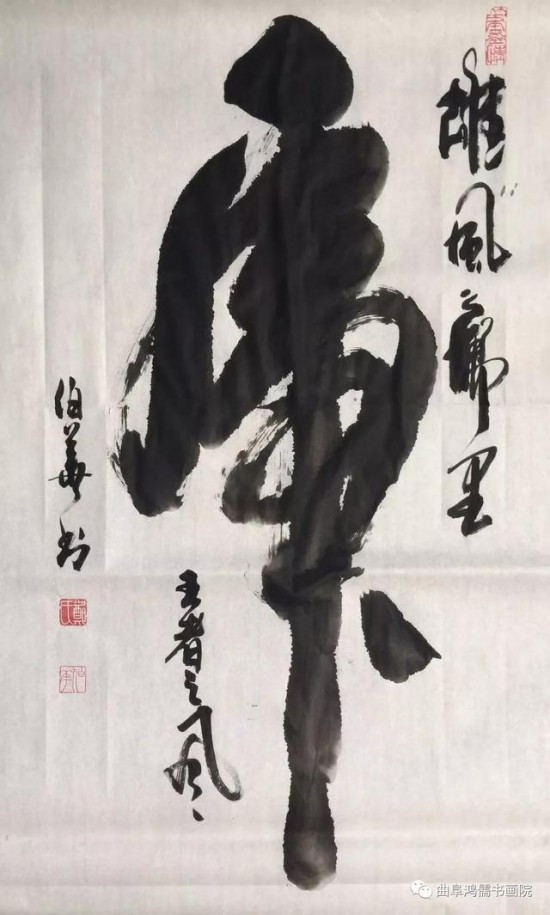 雄風里
虎
王者之风
伯華书
曲阜鸿儒书画院